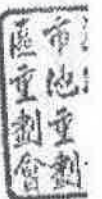 市池重劃
區重劃會